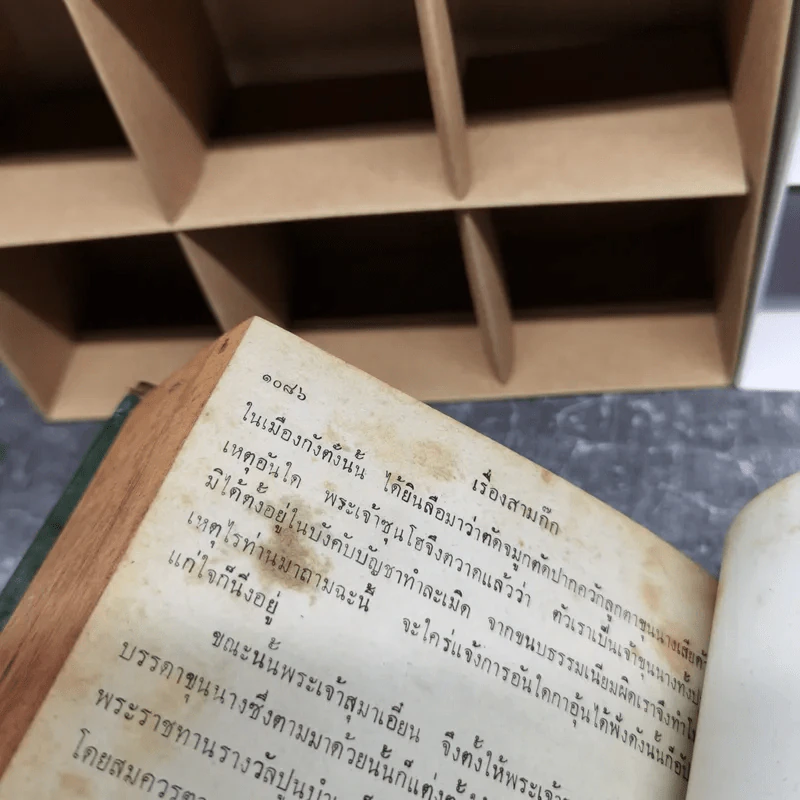 ๑๐๘๖
เรื่องสามก๊ก
ในเมืองกังตั๋งนั้น ได้ยินลือมาว่าตัดจมูกตัดปากควักลูกตาขุนนางเสียด้วย
เหตุอันใด พระเจ้าซุนโฮจึงตวาดแล้วว่า ตัวเราเป็นเจ้าขุนนางทั้ง
มิได้ตั้งอยู่ในบังคับบัญชาทำละเมิด จากขนบธรรมเนียมผิดเราจึงทำโทษ
เหตุไรท่านมาถามฉะนี้ จะใคร่แจ้งการอันใด กาอุ้นได้ฟังดังนั้นก็
แก่ใจก็นิ่งอยู่
ขณะนั้นพระเจ้าสุมาเอี๋ยน จึงตั้งให้พระเจ้า
บรรดาขุนนางซึ่งตามมาด้วยนั้นก็แต่งตั้ง
พระราชทานรางวัลปูนบำเหน็จ
โดยสมควร